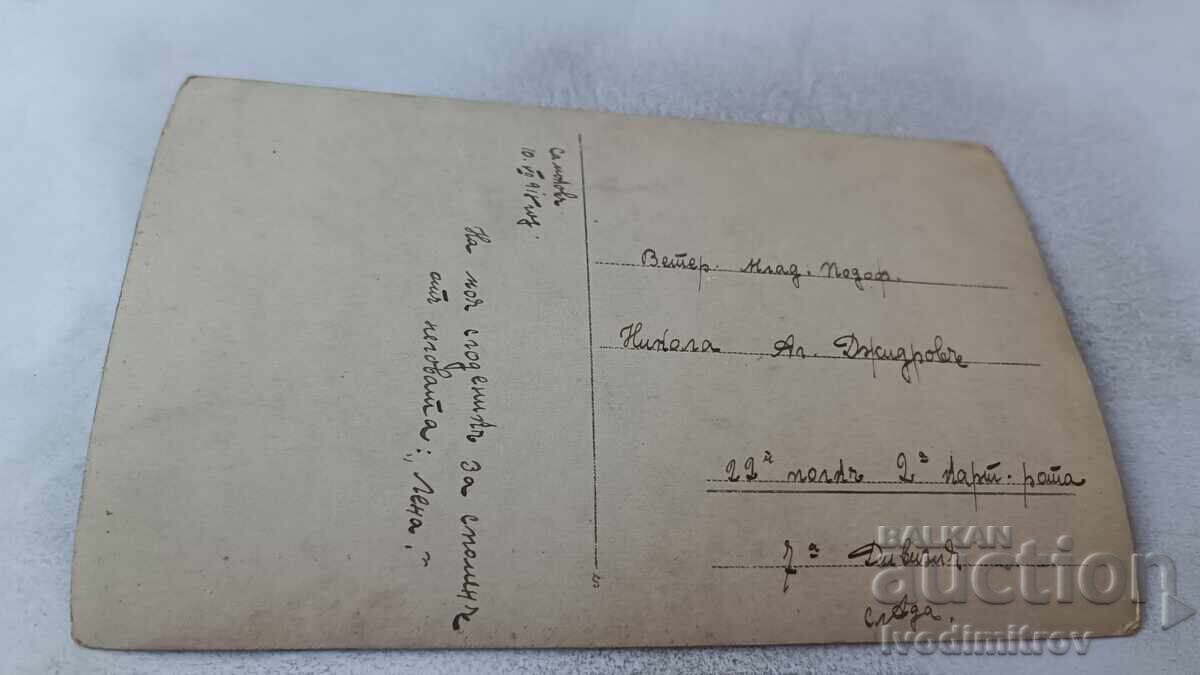 Самоковъ.
10. VII 918 год.
На моя годеникъ за споменъ
отъ неговата: „Лена“.
Ветер. млад. подоф.
Никола Ал. Джидровъ
22й полкъ 2а карт. рота
7а Дивизия
слѣда.
BALKAN
auction
Ivodimitrov